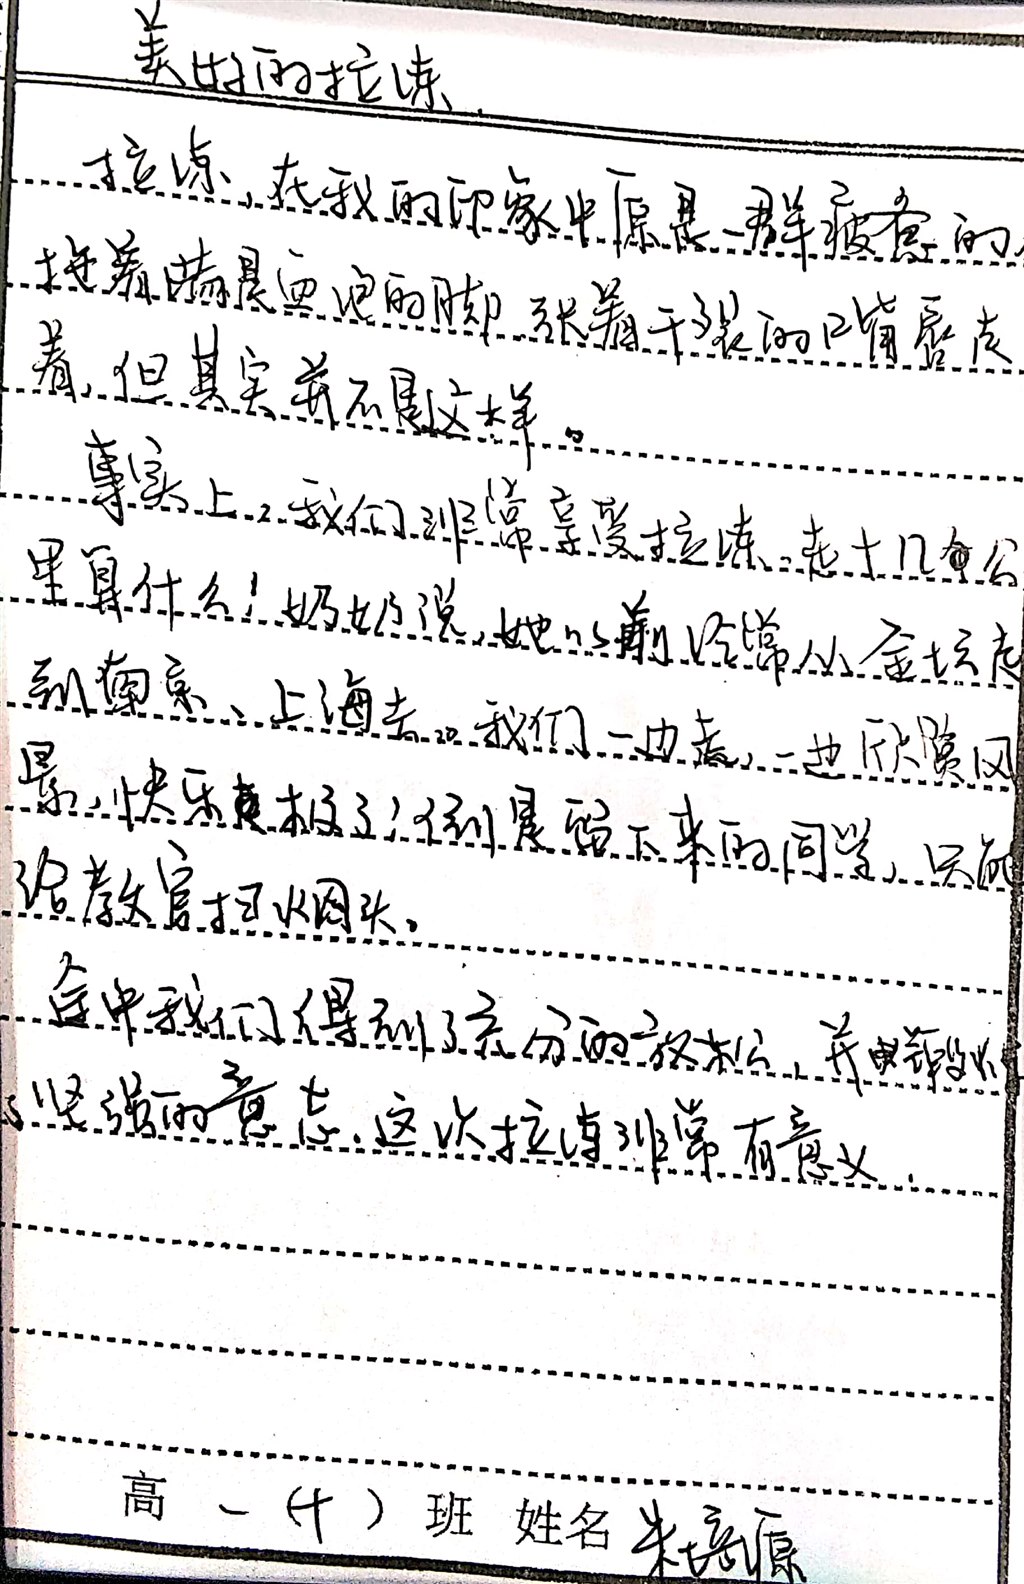 美好的拉练
拉练，在我的印象中原是一群疲惫的人
拖着满是血泡的脚，张着干裂的口嘴唇走
着，但其实并不是这样。
事实上，我们非常享受拉练，走十几个公
里算什么！奶奶说，她以前经常从金坛走
到南京、上海去。我们一边走，一边欣赏风
景，快乐极了！倒是留下来的同学，只能
给教官扫烟头。
途中我们得到了充分的放松，并锻炼
了坚强的意志，这次拉练非常有意义．
高一（十）班 姓名 朱培源